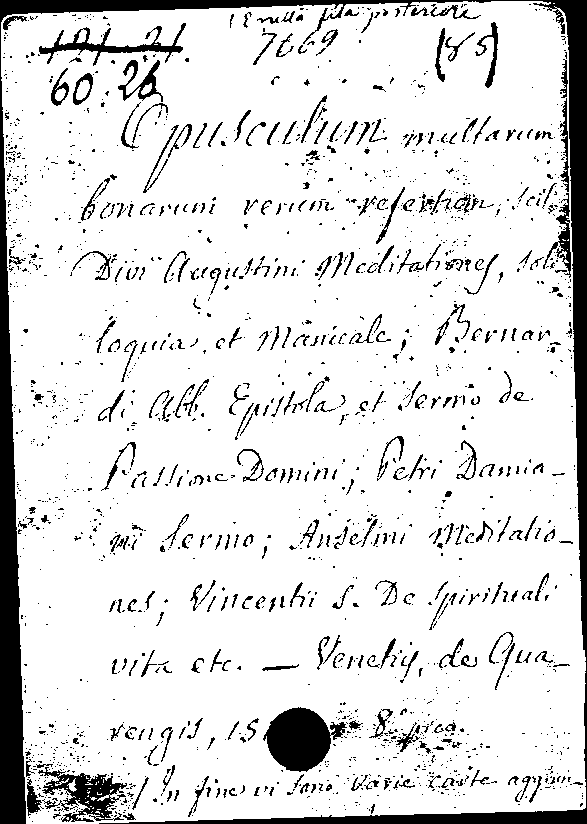 ( È nella fila posteriore
121. 21. 7669 (85)
60. 26
Opusculum multarum
bonarum rerum refertum, scil.
Divi Augustini Meditationes, soli-
loquia, et Manuale; Bernar-
di Abb. Epistola, et Sermo de
Passione Domini; Petri Damia-
ni Sermo; Anselmi Meditatio-
nes; Vincentii S. De Spirituali
vita etc. — Venetijs, de Qua-
rengis, 15 8.° picc.
( In fine vi sono varie carte aggiun-